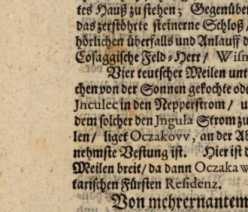 tes Hauß zu stehen; Gegenüber
das zerstöhrte steinerne Schloß/
hörlichen überfalls und Anlauff d
Cosaggische Feld-Herr/ Wisn
Vier teutscher Meilen unt
chen von der Sonnen gekochte ode
Inculec in den Nepperstrom/ u
dem solcher den Ingula Strom zu
len/ liget Oczakovv, an der Ab
nehmste Vestung ist. Hier ist d
Meilen breit/ da dann Oczakaw
tarischen Fürsten Residenz.
Von mehrernantem